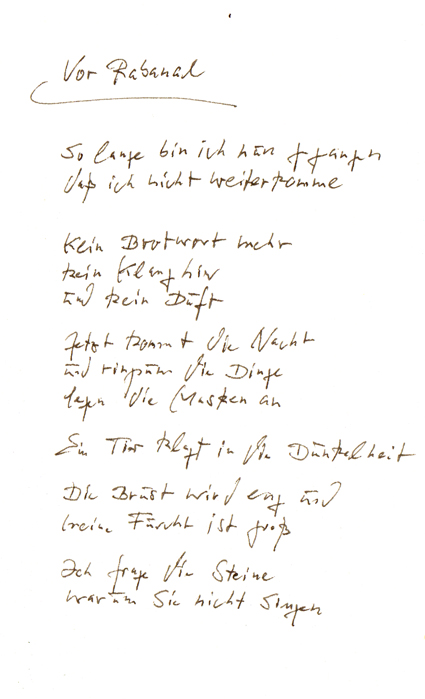 Vor Rabanal
So lange bin ich nun gegangen
daß ich nicht weiterkomme
Kein Brotwort mehr
kein Klang hier
und kein Duft
Jetzt kommt die Nacht
und ringsum die Dinge
legen die Masken an
Ein Tier klagt in die Dunkelheit
Die Brust wird eng und
meine Furcht ist groß
Ich frage die Steine
warum Sie nicht Singen